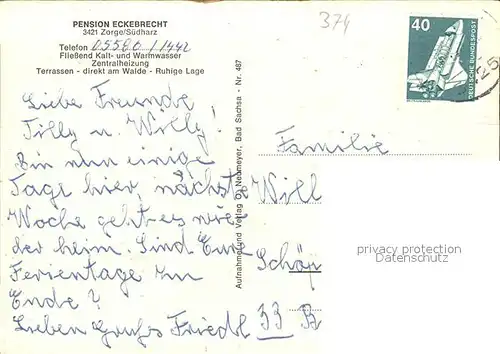 PENSION ECKEBRECHT
3421 Zorge/Südharz
Telefon 05586/1442
Fließend Kalt- und Warmwasser
Zentralheizung
Terrassen - direkt am Walde - Ruhige Lage
Liebe Freunde,
Tilly u. Willy!
Bin nun einige
Tage hier, nächste
Woche geht es wie
der heim. Sind Eure
Ferientage zu
Ende?
Lieben Gruß Friedl
Aufnahme und Verlag O. Neumeyer, Bad Sachsa - Nr. 487
374
40
DEUTSCHE BUNDESPOST
Familie
Will
Schöp
33 B
privacy protection
Datenschutz